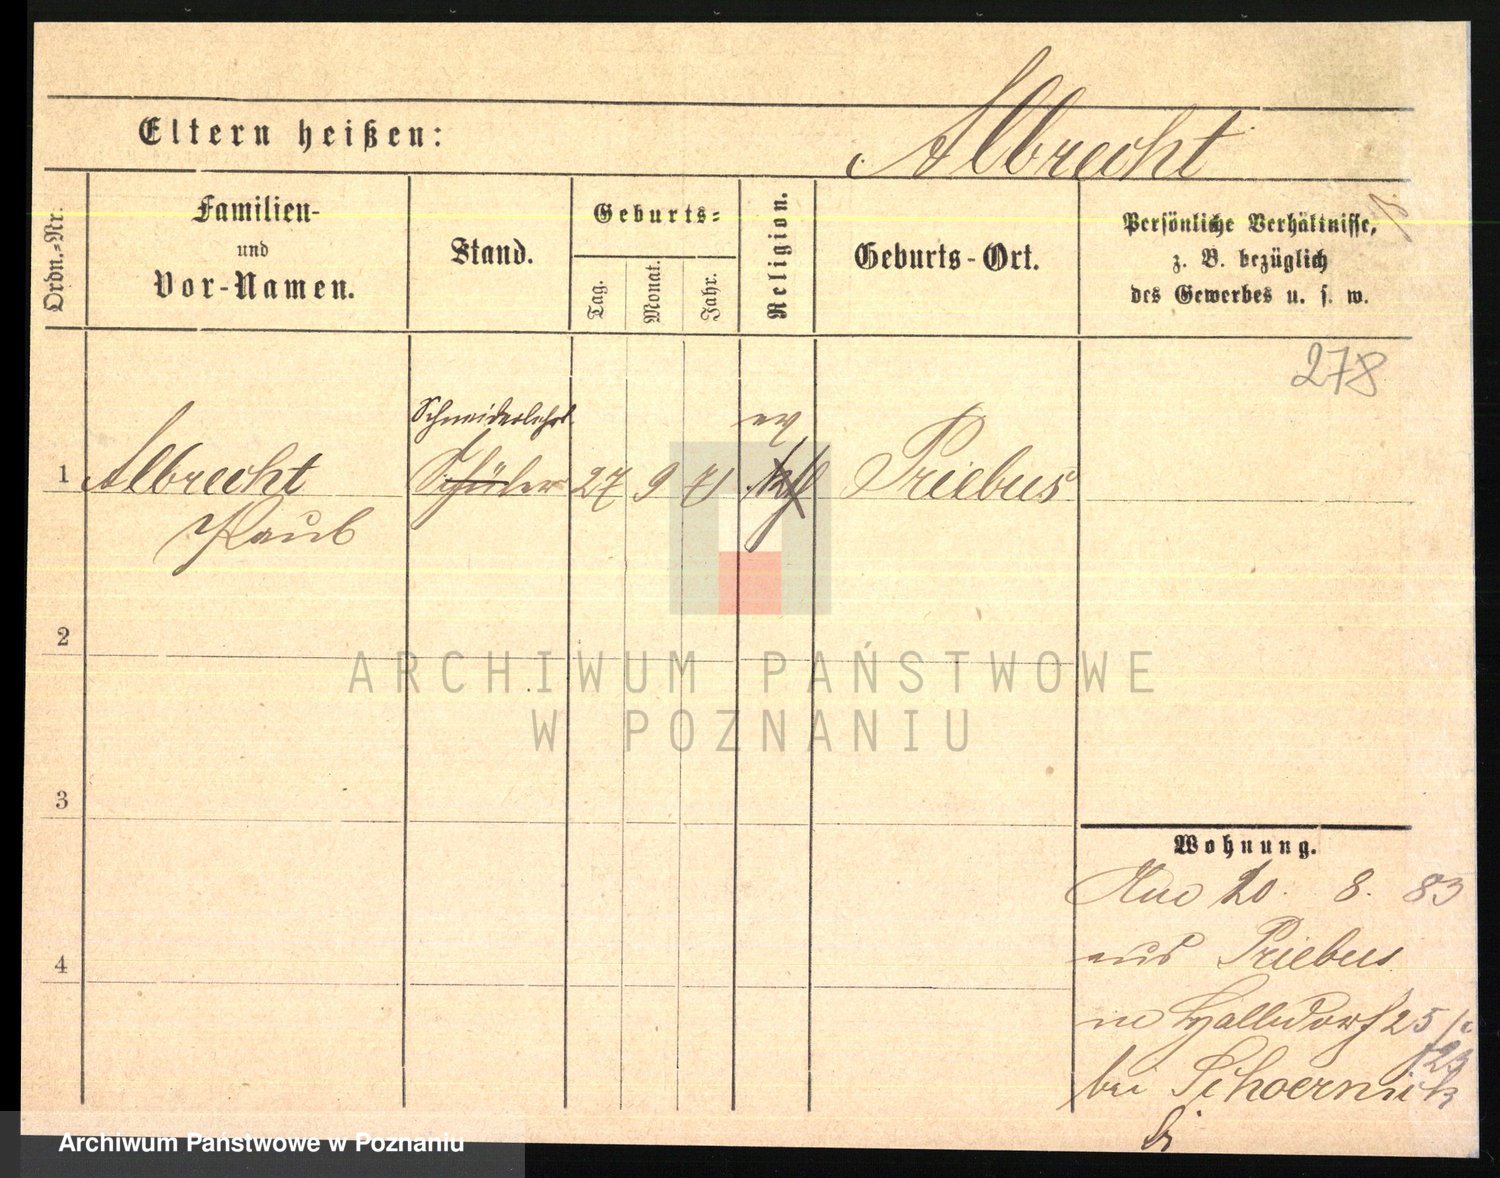 Eltern heißen:
Albrecht
Ordn.-Nr.
Familien-
und
Vor-Namen.
Stand.
Geburts-
Tag.
Monat.
Jahr.
Religion.
Geburts-Ort.
Persönliche Verhältnisse,
z. B. bezüglich
des Gewerbes u. s. w.
278
Schneiderlehrl
ev
1 Albrecht Schüler 27 9 71 Priebus
Paul
2
ARCHIWUM PAŃSTWOWE
W POZNANIU
3
Wohnung.
20. 8. 83
4
aus Priebus
25
bei
Archiwum Państwowe w Poznaniu